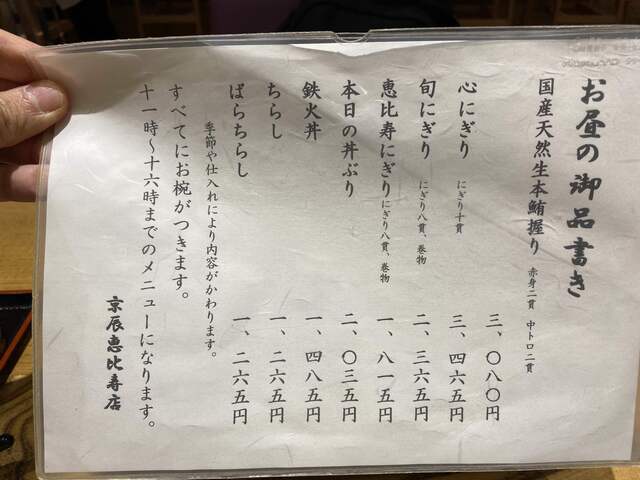 お昼の御品書き
国産天然生本鮪握り 赤身二貫 中トロ二貫 三、〇八〇円
心にぎり にぎり十貫 三、四六五円
旬にぎり にぎり八貫、巻物 二、三六五円
恵比寿にぎり にぎり八貫、巻物 一、八一五円
本日の丼ぶり 二、〇三五円
鉄火丼 一、四八五円
ちらし 一、二六五円
ばらちらし 一、二六五円
季節や仕入れにより内容がかわります。
すべてにお椀がつきます。
十一時〜十六時までのメニューになります。
京辰恵比寿店